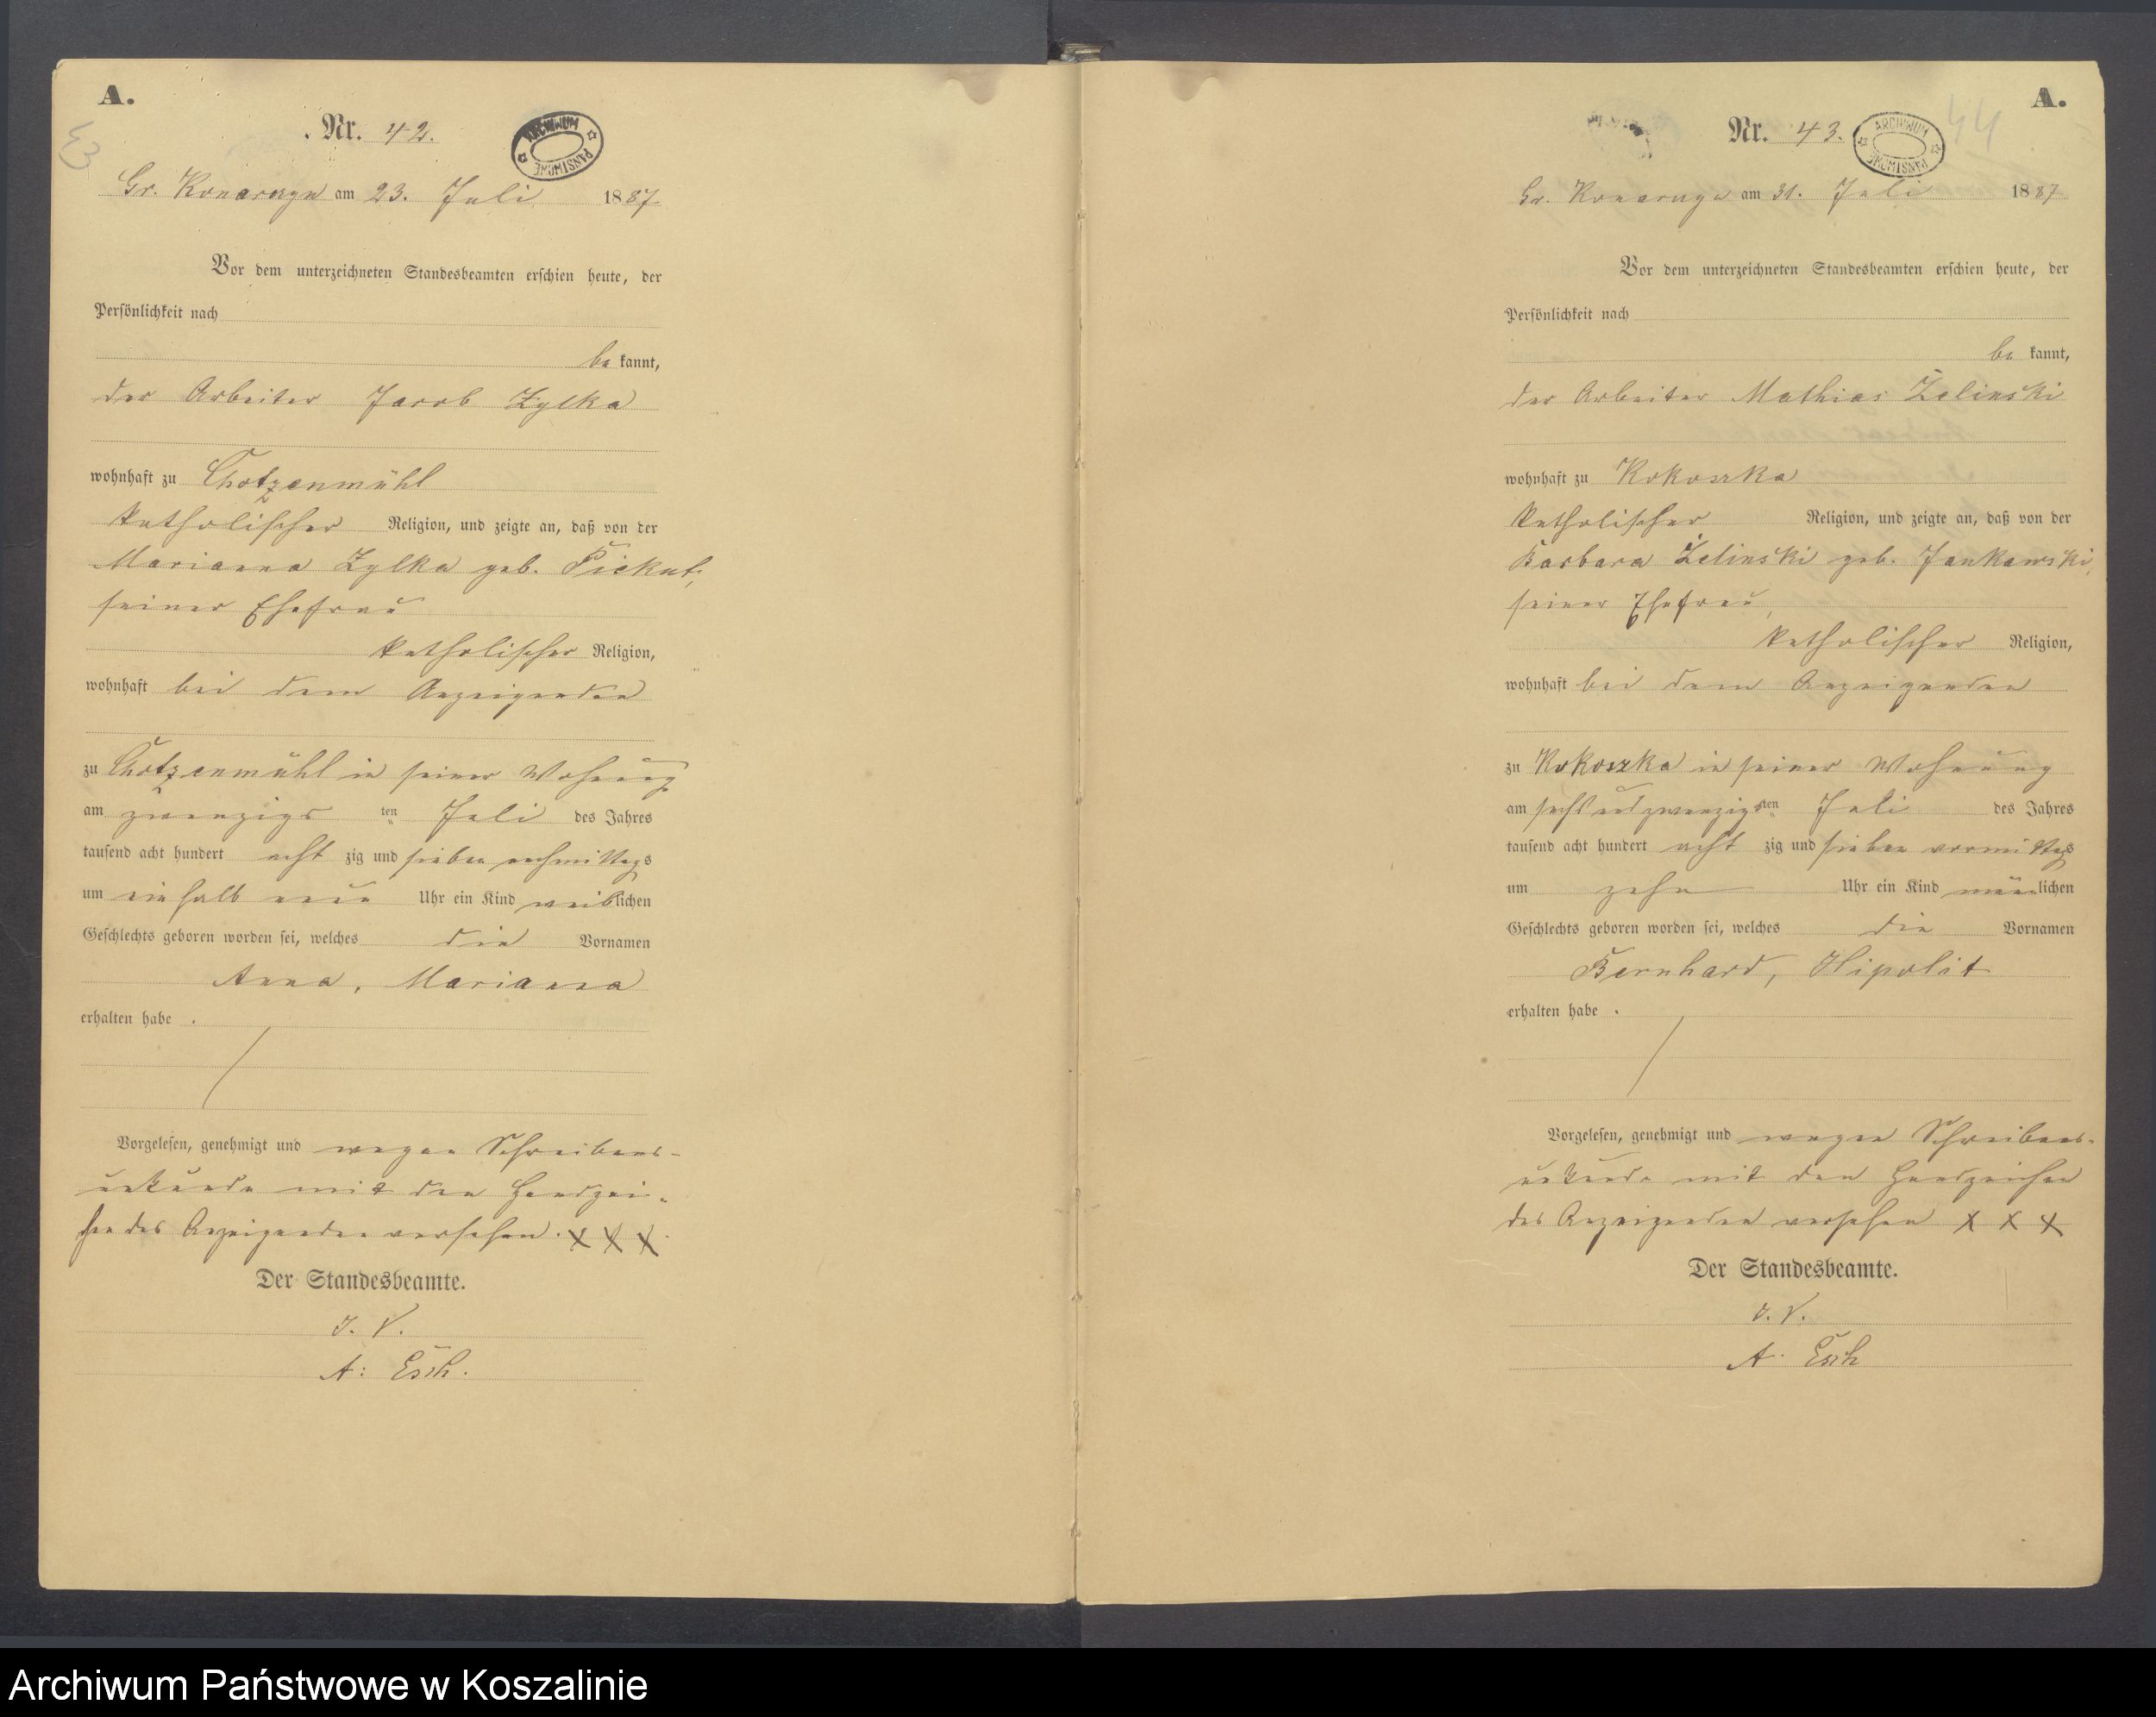 A.
43
Nr. 42.
ARCHIWUM PAŃSTWOWE
Gr. Konarczyn am 23. Juli 1887
Vor dem unterzeichneten Standesbeamten erschien heute, der
Persönlichkeit nach
be kannt,
der Arbeiter Jacob Zylka
wohnhaft zu Chotzenmühl
katholischer Religion, und zeigte an, daß von der
Marianna Zylka geb. Piekut,
seiner Ehefrau
katholischer Religion,
wohnhaft bei dem Anzeigenden
zu Chotzenmühl in seiner Wohnung
am zwanzigs ten Juli des Jahres
tausend acht hundert acht zig und sieben nachmittags
um ein halb neun Uhr ein Kind weiblichen
Geschlechts geboren worden sei, welches die Vornamen
Anna, Marianna
erhalten habe .
Vorgelesen, genehmigt und wegen Schreibens-
unkunde mit den Handzei-
chen des Anzeigenden versehen. X X X
Der Standesbeamte.
I. V.
A: Esch.
A.
44
Nr. 43.
ARCHIWUM PAŃSTWOWE
Gr. Konarczyn am 31. Juli 1887
Vor dem unterzeichneten Standesbeamten erschien heute, der
Persönlichkeit nach
be kannt,
der Arbeiter Mathias Żelinski
wohnhaft zu Kokoszka
katholischer Religion, und zeigte an, daß von der
Barbara Żelinski geb. Jankowski,
seiner Ehefrau,
katholischer Religion,
wohnhaft bei dem Anzeigenden
zu Kokoszka in seiner Wohnung
am sechsundzwanzigsten Juli des Jahres
tausend acht hundert acht zig und sieben vormittags
um zehn Uhr ein Kind männlichen
Geschlechts geboren worden sei, welches die Vornamen
Bernhard, Hipolit
erhalten habe .
Vorgelesen, genehmigt und wegen Schreibens-
unkunde mit den Handzeichen
des Anzeigenden versehen X X X
Der Standesbeamte.
I. V.
A. Esch
Archiwum Państwowe w Koszalinie